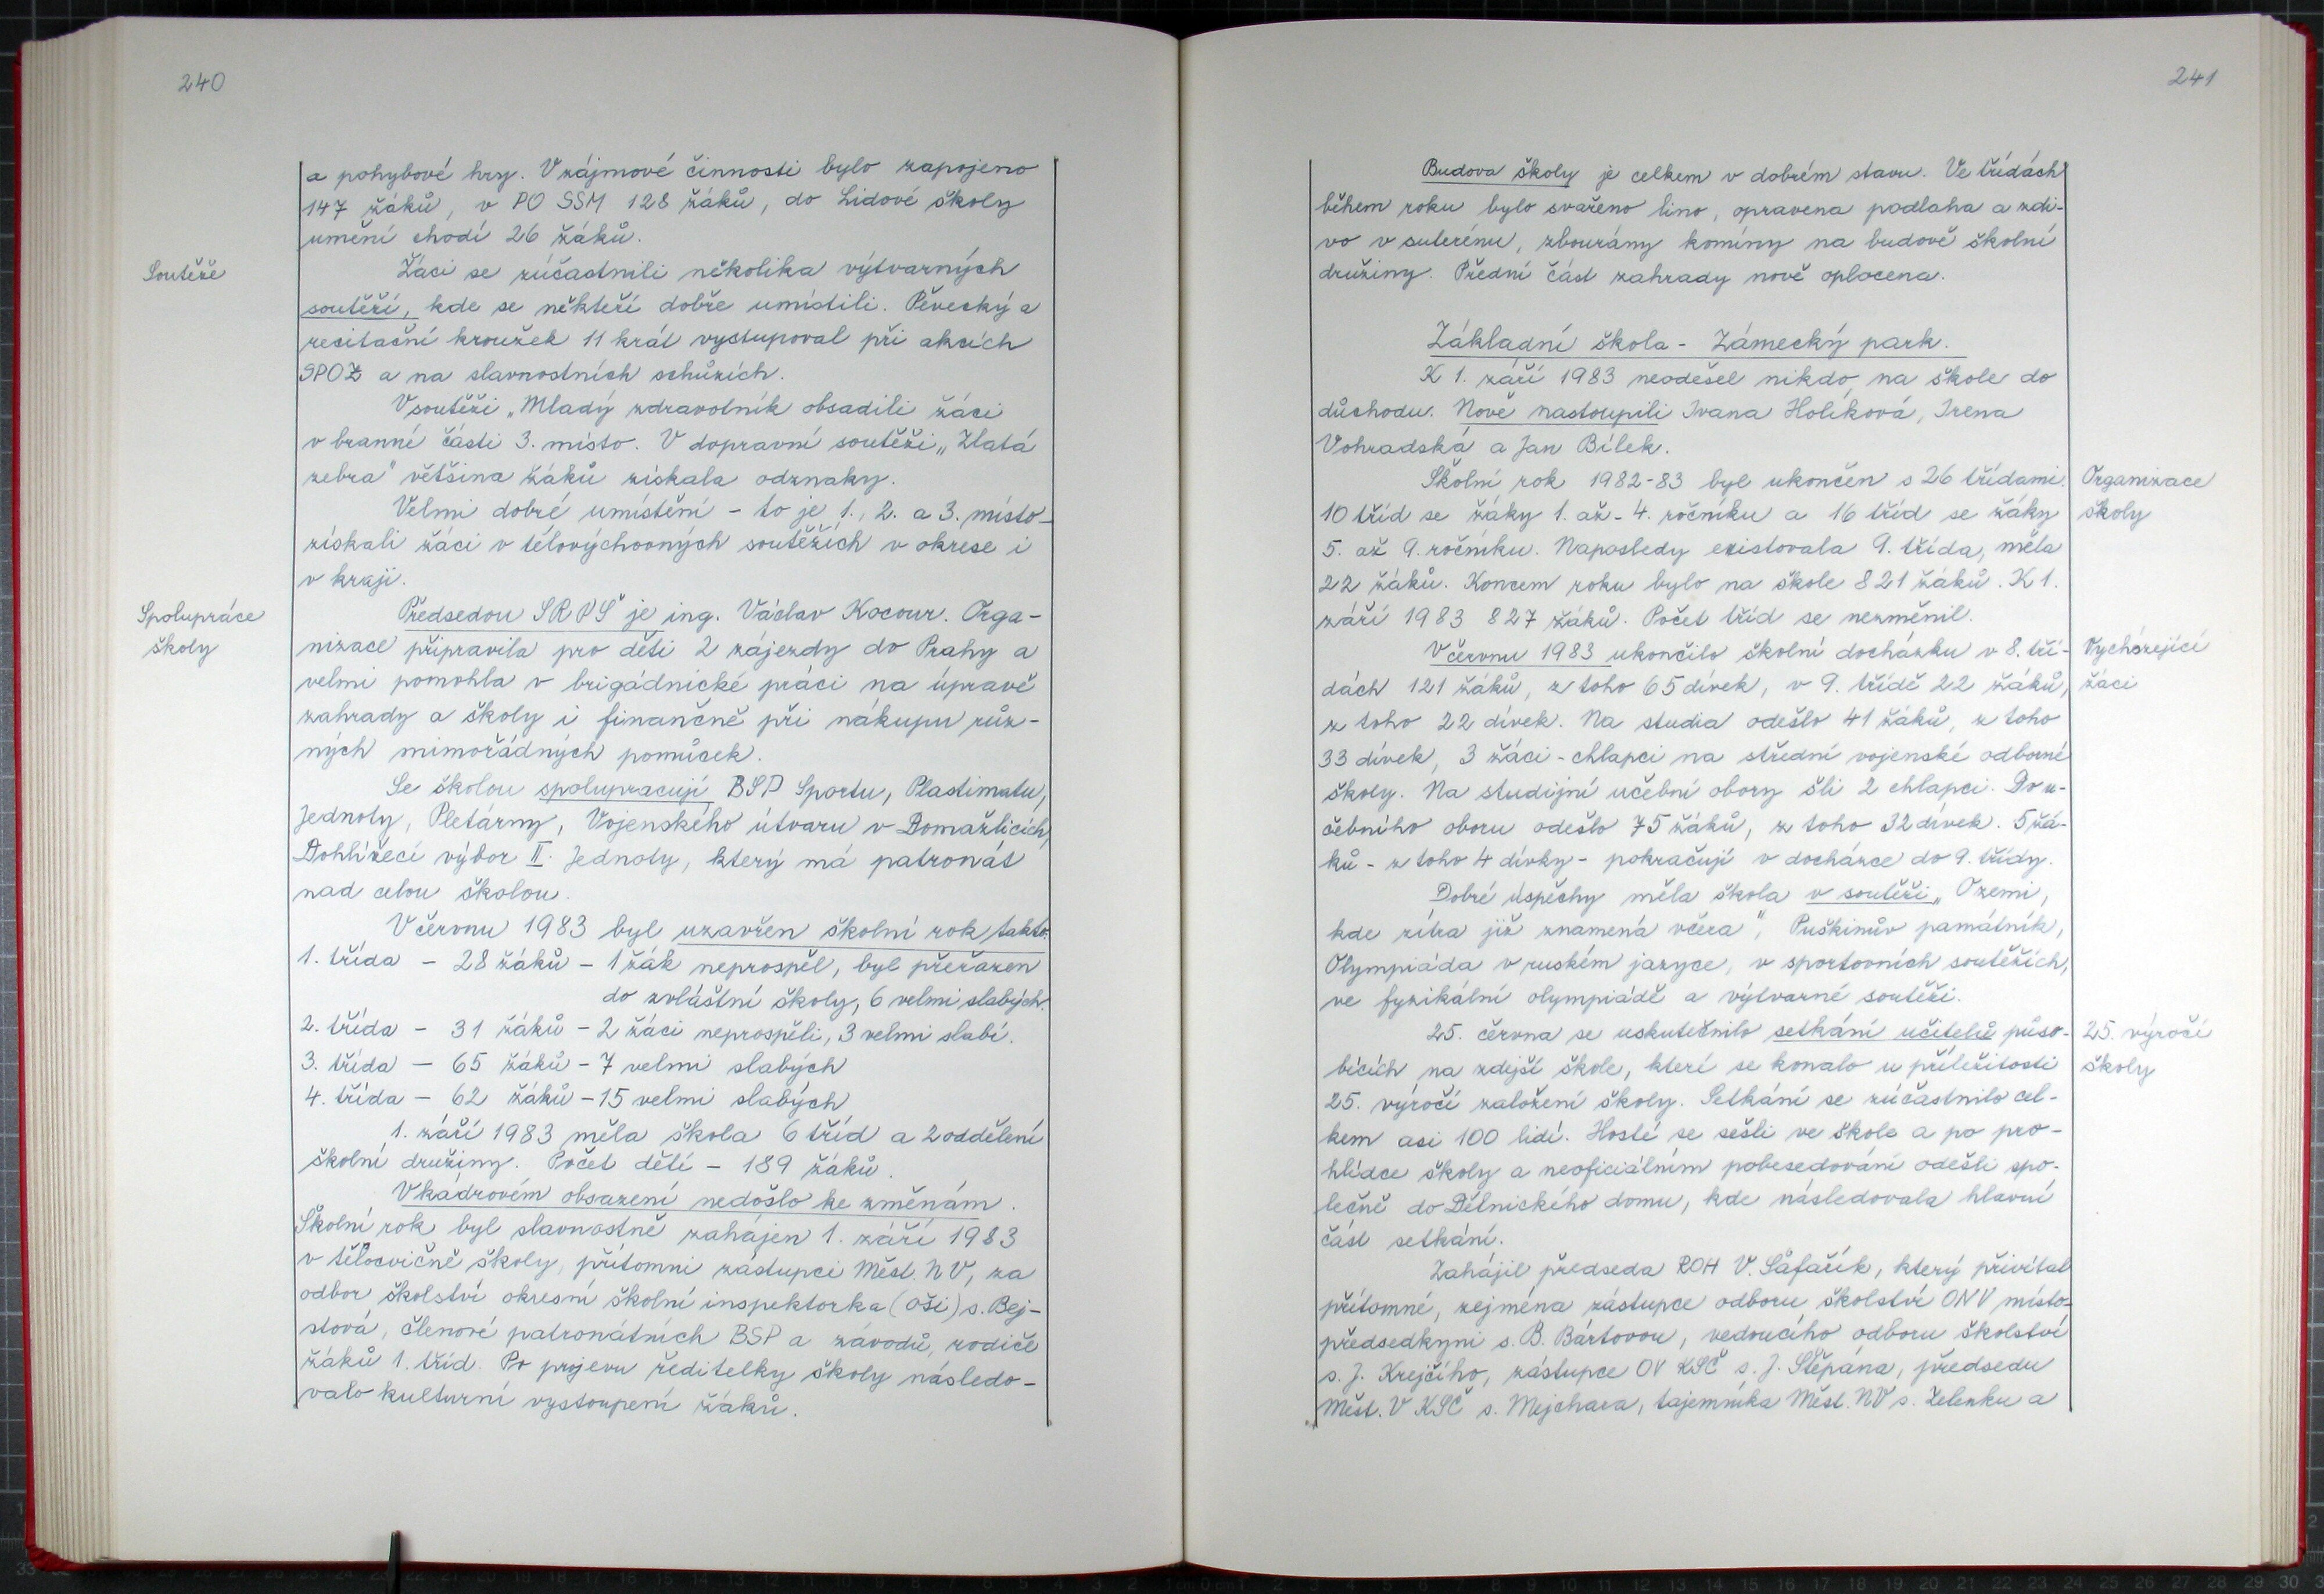 240
a pohybové hry. V zájmové činnosti bylo zapojeno
147 žáků, v PO SSM 128 žáků, do Lidové školy
umění chodí 26 žáků.
Soutěže
Žáci se zúčastnili několika výtvarných
soutěží, kde se někteří dobře umístili. Pěvecký a
recitační kroužek 11 krát vystupoval při akcích
SPOZ a na slavnostních schůzích.
V soutěži „Mladý zdravotník obsadili žáci
v branné části 3. místo. V dopravní soutěži „Zlatá
zebra" většina žáků získala odznaky.
Velmi dobré umístění - to je 1., 2. a 3. místo -
získali žáci v tělovýchovných soutěžích v okrese i
v kraji.
Spolupráce
školy
Předsedou SRPŠ je ing. Václav Kocour. Orga-
nizace připravila pro děti 2 zájezdy do Prahy a
velmi pomohla v brigádnické práci na úpravě
zahrady a školy i finančně při nákupu růz-
ných mimořádných pomůcek.
Se školou spolupracují BSP Sportu, Plastimatu,
Jednoty, Pletárny, Vojenského útvaru v Domažlicích,
Dohlížecí výbor II. Jednoty, který má patronát
nad celou školou.
V červnu 1983 byl uzavřen školní rok takto:
1. třída - 28 žáků - 1 žák neprospěl, byl přeřazen
do zvláštní školy, 6 velmi slabých.
2. třída - 31 žáků - 2 žáci neprospěli, 3 velmi slabí.
3. třída - 65 žáků - 7 velmi slabých
4. třída - 62 žáků - 15 velmi slabých
1. září 1983 měla škola 6 tříd a 2 oddělení
školní družiny. Počet dětí - 189 žáků.
V kádrovém obsazení nedošlo ke změnám.
Školní rok byl slavnostně zahájen 1. září 1983
v tělocvičně školy, přítomni zástupci Měst. NV, za
odbor školství okresní školní inspektorka (oši) s. Bej-
stová, členové patronátních BSP a závodů, rodiče
žáků 1. tříd. Po projevu ředitelky školy následo-
valo kulturní vystoupení žáků.
241
Budova školy je celkem v dobrém stavu. Ve třídách
během roku bylo svařeno lino, opravena podlaha a zdi-
vo v suterénu, zbourány komíny na budově školní
družiny. Přední část zahrady nově oplocena.
Základní škola - Zámecký park.
K 1. září 1983 neodešel nikdo na škole do
důchodu. Nově nastoupili Ivana Holíková, Irena
Vohradská a Jan Bílek.
Školní rok 1982-83 byl ukončen s 26 třídami.
Organizace
školy
10 tříd se žáky 1. až - 4. ročníku a 16 tříd se žáky
5. až 9. ročníku. Naposledy existovala 9. třída, měla
22 žáků. Koncem roku bylo na škole 821 žáků. K 1.
září 1983 827 žáků. Počet tříd se nezměnil.
V červnu 1983 ukončilo školní docházku v 8. tří-
Vycházející
žáci
dách 121 žáků, z toho 65 dívek, v 9. třídě 22 žáků,
z toho 22 dívek. Na studia odešlo 41 žáků, z toho
33 dívek, 3 žáci - chlapci na střední vojenské odborné
školy. Na studijní učební obory šli 2 chlapci. Do u-
čebního oboru odešlo 75 žáků, z toho 32 dívek. 5 žá-
ků - z toho 4 dívky - pokračují v docházce do 9. třídy.
Dobré úspěchy měla škola v soutěži „O zemi,
kde zítra již znamená včera", Puškinův památník,
Olympiáda v ruském jazyce, v sportovních soutěžích,
ve fyzikální olympiádě a výtvarné soutěži.
25. června se uskutečnilo setkání učitelů půso-
25. výročí
školy
bících na zdejší škole, kterí se konalo u příležitosti
25. výročí založení školy. Setkání se zúčastnilo cel-
kem asi 100 lidí. Hosté se sešli ve škole a po pro-
hlídce školy a neoficiálním pobesedování odešli spo-
lečně do Dělnického domu, kde následovala hlavní
část setkání.
Zahájil předseda ROH V. Šafařík, který přivítal
přítomné, zejména zástupce odboru školství ONV místo-
předsedkyni s. B. Bártovou, vedoucího odboru školství
s. J. Krejčího, zástupce OV KSČ s. J. Štěpána, předsedu
Měst. V KSČ s. Mejchara, tajemníka Měst. NV s. Zelenku a